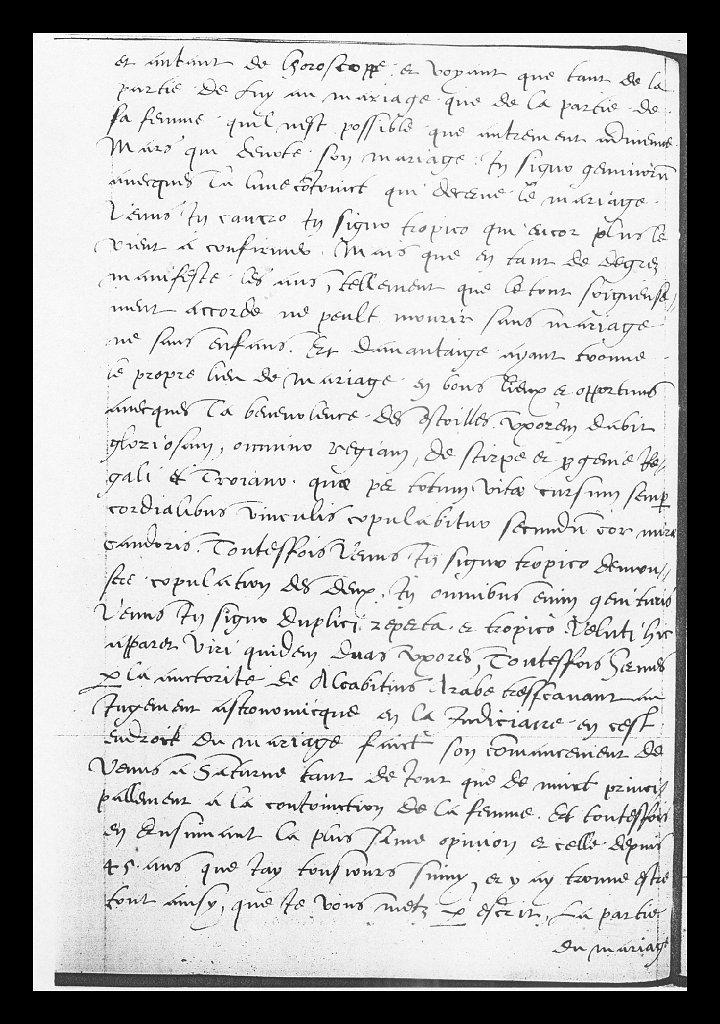 et autant de horoscoppe et voyant que tant de la
partie de luy au mariage que de la partie de
sa femme quil nest possible que autrement advienne
Mars qui denote son mariage In signo geminorũ
avecques la lune cõioinct qui decerne le mariage
Venus In cancro In signo tropico qui encor plus le
vient a confirmer. Mais que en tant de degrez
manifeste les ans, tellement que le tout soigneuse//
ment accorde ne peult mourir sans mariage
ne sans enfans. Et davantaige ayant trouve
le propre lieu de mariage en bons lieux et opportuns
avecques la benevolence des estoilles, uxorem dabit
gloriosam, omnino regiam, de stirpe et ꝓgenie Re//
gali et Troiano. quæ per totum vitæ cursum semp
cordialibus vinculis copulabitur secundũ cor mire
candoris. Toutesfois Venus In signo tropico demon//
stre copulation des deux, In omnibus enim genituris
Venus In signo duplici reperta et tropico Veluti hic
apparet viri quidem duas uxores, Toutesfois
ꝑ la auctorite de Alcabitius Arabe tresscavant au
Jugement astronomicque en la Judiciaire en cest
endroict du mariage faict son commancement de
Venus a Saturne tant de iour que de nuict princi//
pallement a la conionction de la femme. Et toutesfois
en ensuivant la plus saine opinion et celle depuis
45 ans que Jay tousiours suivy, et y ay trouve estre
tout ainsy, que Je vous metz ꝑ escrit, La partie
du mariage